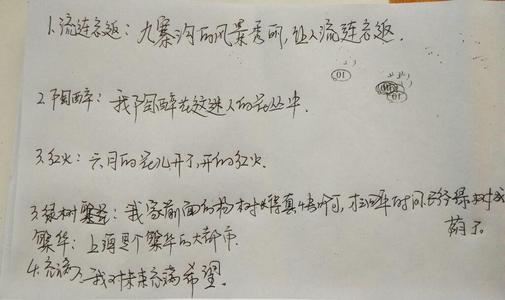 1.流连忘返：九寨沟的风景秀丽,让人流连忘返.
01
01
2.陶醉：我陶醉在这迷人的花丛中.
3.红火：六月的花儿开了,开的红火.
3.绿树：我家前面的杨树长得真快呀,才四年时间已经绿树成
荫了.
繁华：上海是个繁华的大都市.
4.充满：我对未来充满希望.